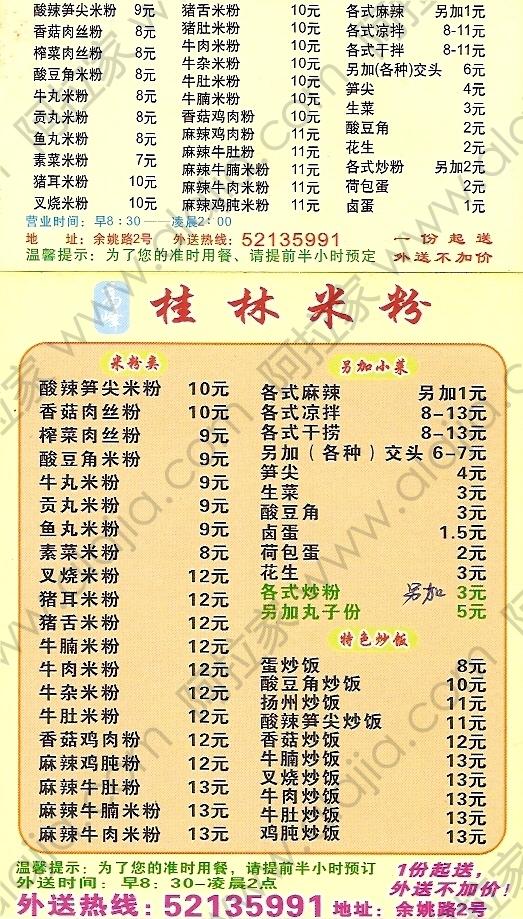 酸辣笋尖米粉 9元 猪舌米粉 10元 各式麻辣 另加1元
香菇肉丝粉 8元 猪肚米粉 10元 各式凉拌 8-11元
榨菜肉丝粉 8元 牛肉米粉 10元 各式干拌 8-11元
酸豆角米粉 8元 牛杂米粉 10元 另加(各种)交头 6元
牛丸米粉 8元 牛肚米粉 10元 笋尖 4元
贡丸米粉 8元 牛腩米粉 10元 生菜 3元
鱼丸米粉 8元 香菇鸡肉粉 10元 酸豆角 2元
素菜米粉 7元 麻辣鸡肉粉 11元 花生 2元
猪耳米粉 10元 麻辣牛肚粉 11元 各式炒粉 另加2元
叉烧米粉 10元 麻辣牛腩米粉 11元 荷包蛋 2元
麻辣牛肉米粉 11元 卤蛋 1元
麻辣鸡肫米粉 11元
营业时间：早8：30——凌晨2：00
地 址：余姚路2号 外送热线：52135991 一份起送
温馨提示：为了您的准时用餐、请提前半小时预定 外送不加价
桂林米粉
米粉类
酸辣笋尖米粉 10元
香菇肉丝粉 10元
榨菜肉丝粉 9元
酸豆角米粉 9元
牛丸米粉 9元
贡丸米粉 9元
鱼丸米粉 9元
素菜米粉 8元
叉烧米粉 12元
猪耳米粉 12元
猪舌米粉 12元
牛腩米粉 12元
牛肉米粉 12元
牛杂米粉 12元
牛肚米粉 12元
香菇鸡肉粉 12元
麻辣鸡肫粉 12元
麻辣牛肚粉 13元
麻辣牛腩米粉 13元
麻辣牛肉米粉 13元
另加小菜
各式麻辣 另加1元
各式凉拌 8-13元
各式干捞 8-13元
另加（各种）交头 6-7元
笋尖 4元
生菜 3元
酸豆角 3元
卤蛋 1.5元
荷包蛋 2元
花生 3元
各式炒粉 另加 3元
另加丸子份 5元
特色炒饭
蛋炒饭 8元
酸豆角炒饭 10元
扬州炒饭 11元
酸辣笋尖炒饭 11元
香菇炒饭 12元
牛腩炒饭 13元
叉烧炒饭 13元
牛肉炒饭 13元
牛肚炒饭 13元
鸡肫炒饭 13元
温馨提示：为了您的准时用餐，请提前半小时预订
外送时间：早8：30-凌晨2点
1份起送，
外送不加价!
外送热线：52135991 地址：余姚路2号
阿拉家 www.alajia.com